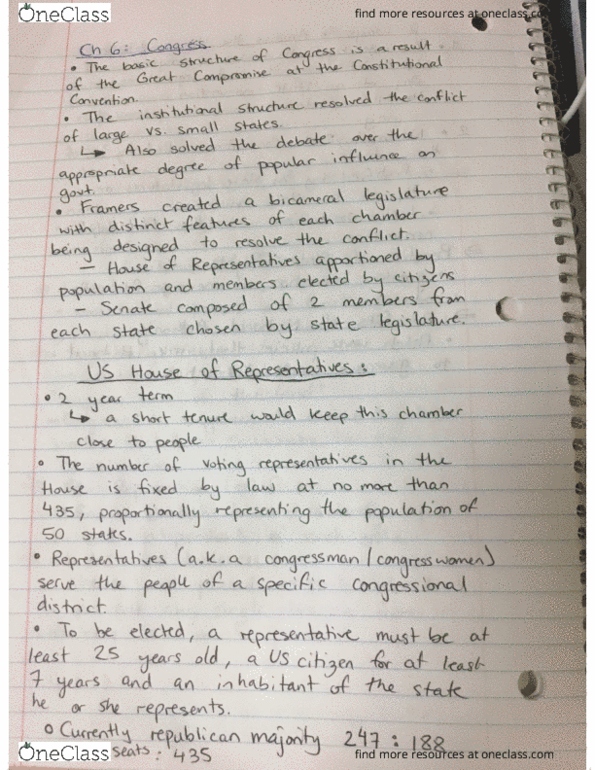 OneClass
find more resources at oneclass.com
Ch 6: Congress
• The basic structure of Congress is a result
of the Great Compromise at the Constitutional
Convention.
• The institutional structure resolved the conflict
of large vs. small states.
↳ Also solved the debate over the
appropriate degree of popular influence on
govt.
• Framers created a bicameral legislature
with distinct features of each chamber
being designed to resolve the conflict.
– House of Representatives apportioned by
population and members elected by citizens
– Senate composed of 2 members from
each state chosen by state legislature.
US House of Representatives:
• 2 year term
↳ a short tenure would keep this chamber
close to people
• The number of voting representatives in the
House is fixed by law at no more than
435, proportionally representing the population of
50 states.
• Representatives (a.k.a congressman/congresswomen)
serve the people of a specific congressional
district.
• To be elected, a representative must be at
least 25 years old, a US citizen for at least
7 years and an inhabitant of the state
he or she represents.
• Currently republican majority 247 : 188
seats : 435
OneClass
find more resources at oneclass.com